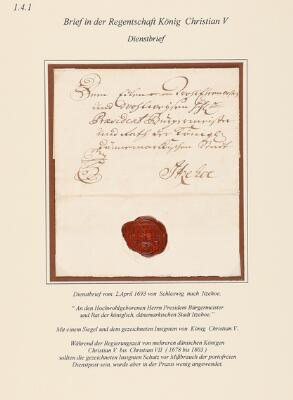 1.4.1
Brief in der Regentschaft König Christian V
Dienstbrief
und
Præsident Bürgermeister
und Rath der Königl.
Stadt
Itzehoe.
Dienstbrief vom 2.April 1693 von Schleswig nach Itzehoe.
" An den Hochwohlgeborenen Herrn President Bürgermeister
und Rat der königlich, dänemarkischen Stadt Itzehoe."
Mit einem Siegel und dem gezeichneten Insignum von König Christian V.
Während der Regierungszeit von mehreren dänischen Königen
Christian V bis Christian VII ( 1678 bis 1803 )
sollten die gezeichneten Insignum Schutz vor Mißbrauch der portofreien
Dienstpost sein, wurde aber in der Praxis wenig angewendet.